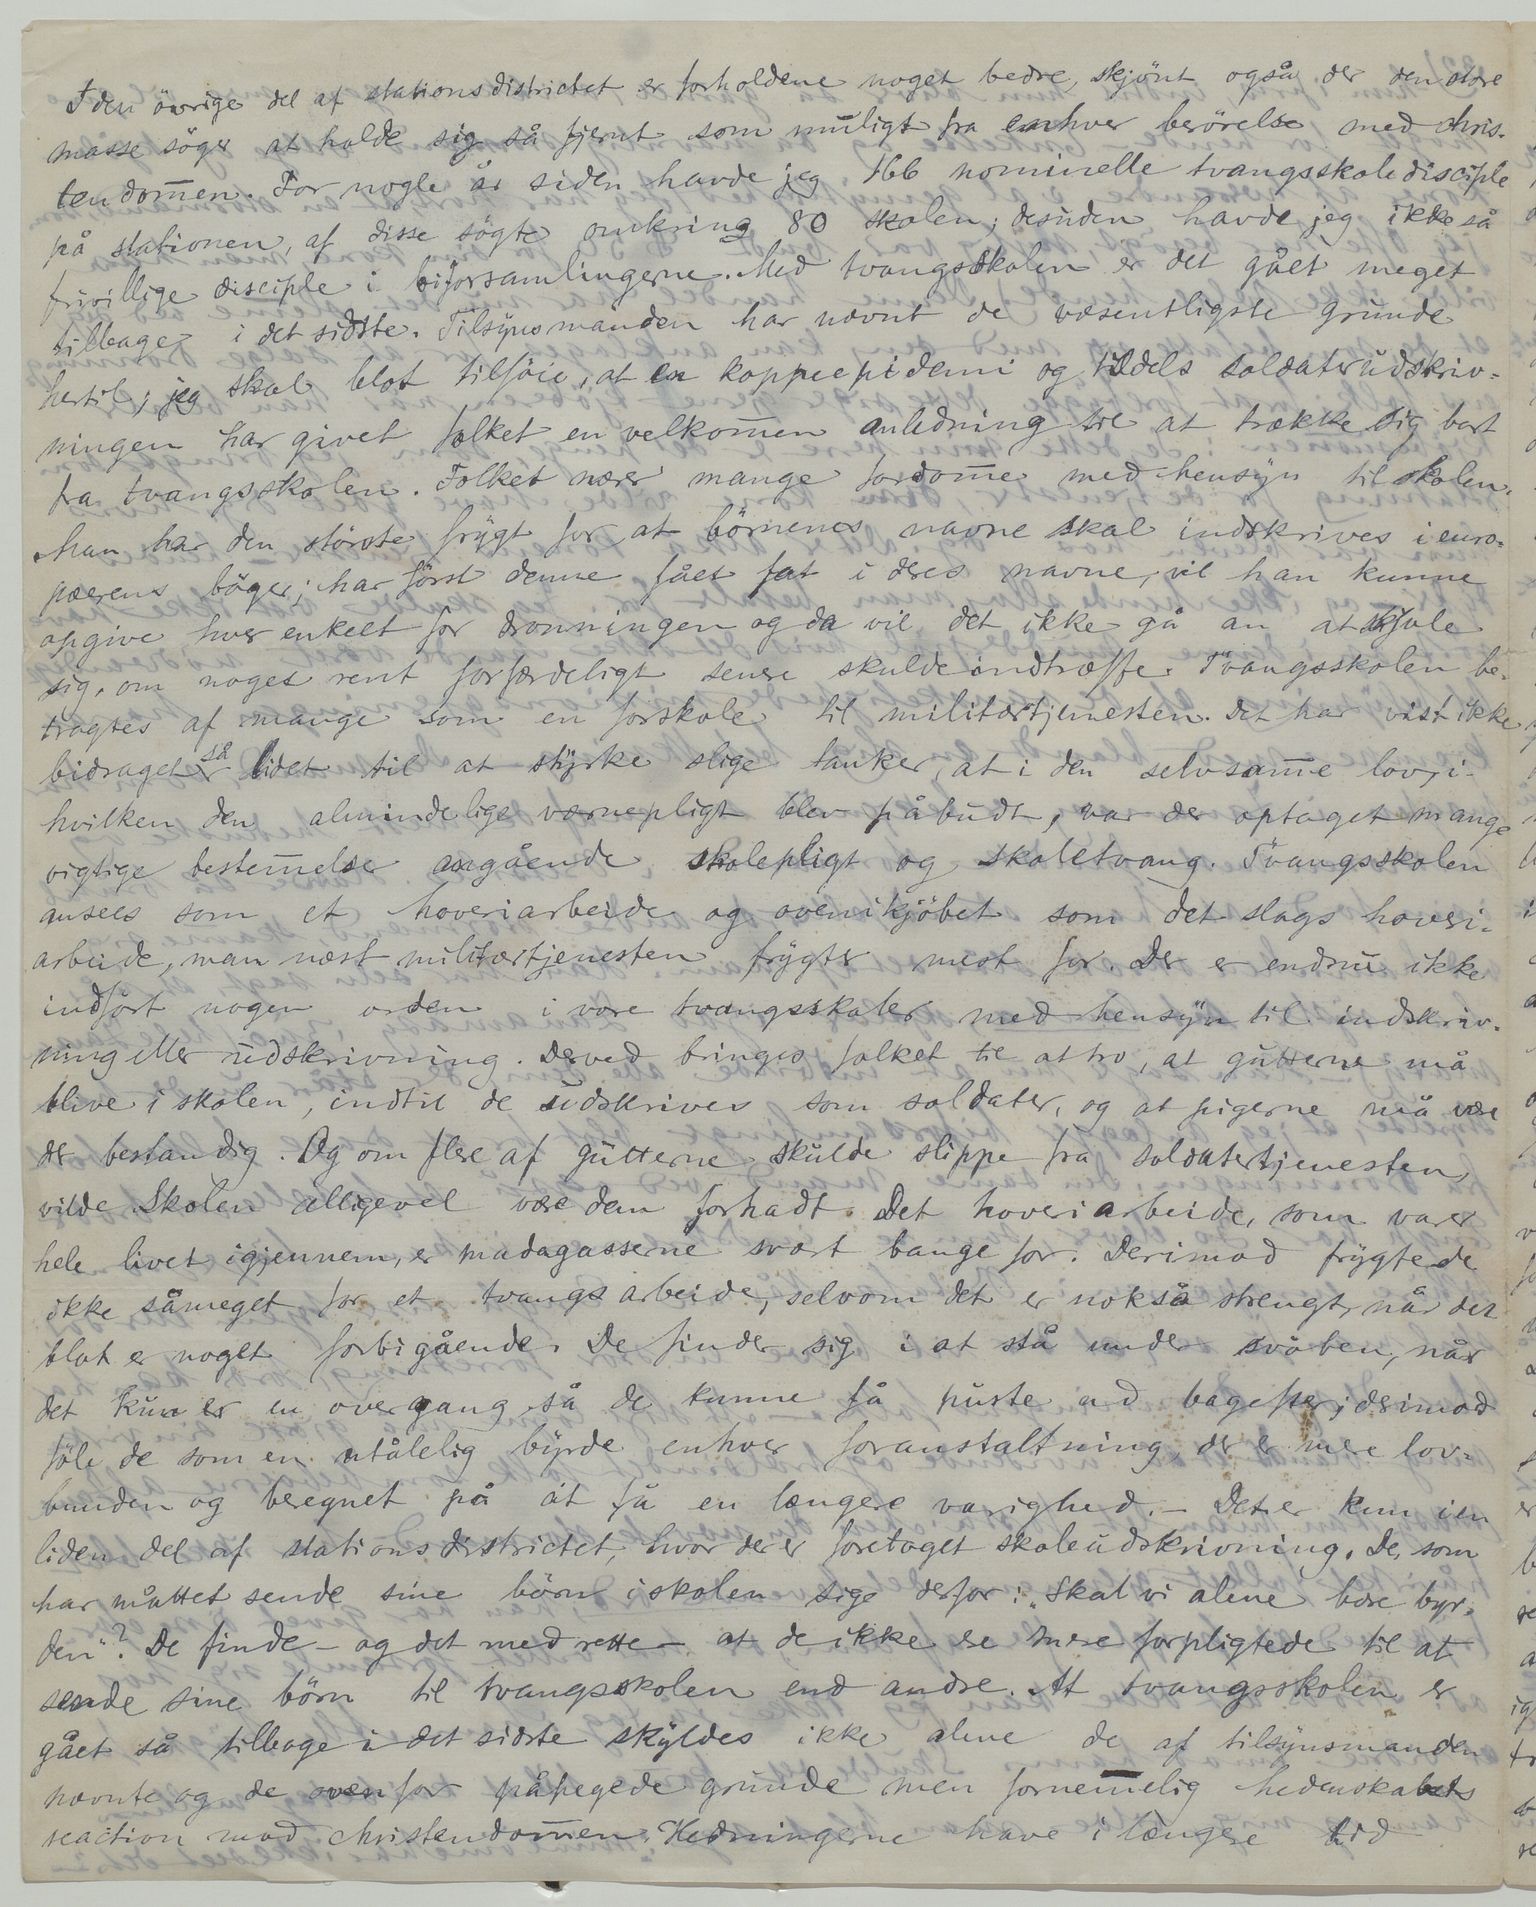 I den övrige del af stationsdistrictet er forholdene noget bedre, skjönt også der den store
masse söger at holde sig så fjernt som muligt fra enhver berörelse med chris-
tendom̄en. For nogle år siden havde jeg 166 nominelle tvangsskoledisciple
på stationen, af disse sögte omkring 80 skolen; desuden havde jeg ikke så
frivillige disciple i biforsamlingerne. Med tvangsskolen er det gået meget
tilbage i det sidste. Tilsynsmanden har nævnt de væsentligste grunde
hertil; jeg skal blot tilföie, at en koppeepidemi og tildels soldaterudskriv-
ningen har givet folket en velkom̄en anledning til at trække sig bort
fra tvangsskolen. Folket nærer mange fordom̄e med hensyn til skolen.
Man har den störste frygt for, at börnenes navne skal indskrives i euro-
pæerens böger; har först denne fået fat i deres navne, vil han kunne
opgive hver enkelt for dronningen og da vil det ikke gå an at skjule
sig, om noget rent forfærdeligt senere skulde indtræffe. Tvangsskolen be-
tragtes af mange som en forskole til militærtjenesten. Det har vist ikke
bidraget så lidet til at styrke slige tanker, at i den selvsam̄e lov, i
hvilken den almindelige værnepligt blev påbudt, var der optaget mange
vigtige bestem̄elser angående skolepligt og skoletvang. Tvangsskolen
ansees som et hoveriarbeide og ovenikjöbet som det slags hoveri-
arbeide, man næst militærtjenesten frygter mest for. Der er endnu ikke
indfört nogen orden i vore tvangsskoler med hensyn til indskriv-
ning eller udskrivning. Derved bringes folket til at tro, at gutterne må
blive i skolen, indtil de udskrives som soldater, og at pigerne må være
der bestandig. Og om flere af gutterne skulde slippe fra soldatertjenesten,
vilde skolen alligevel være dem forhadt. Det hoveriarbeide, som varer
hele livet igjennem, er madagasserne svært bange for. Derimod frygte de
ikke såmeget for et tvangsarbeide, selvom det er nokså strengt, når det
blot er noget forbigående. De finder sig i at stå under svöben, når
det kun er en overgang så de kunne få puste ud bagefter; derimod
föle de som en utålelig byrde enhver foranstaltning, der er mere lov-
bunden og beregnet på at få en længere varighed. – Det er kun i en
liden del af stationsdistrictet, hvor der er foretaget skoleudskrivning. De, som
har måttet sende sine börn i skolen sige derfor: „Skal vi alene bære byr-
den“? De finde – og det med rette – at de ikke ere mere forpligtede til at
sende sine börn til tvangsskolen end andre. At tvangsskolen er
gået så tilbage i det sidste skyldes ikke alene de af tilsynsmanden
nævnte og de ovenfor påpegede grunde men fornem̄elig hedenskabets
reaction mod christendom̄en. Hedningerne have i længere tid